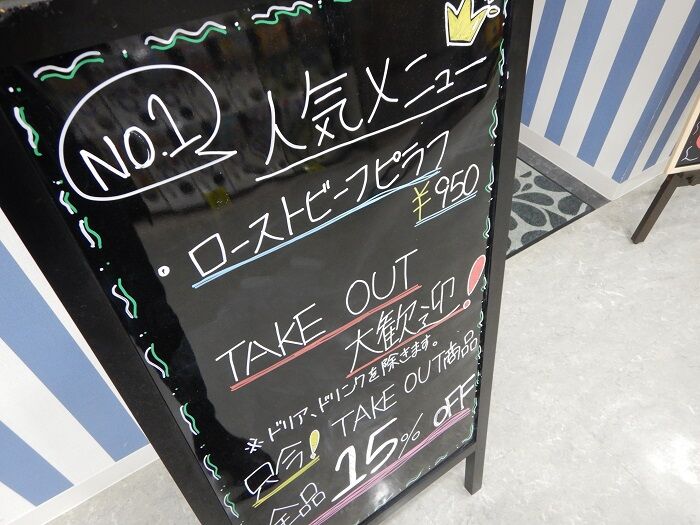 NO.1 人気メニュー
・ローストビーフピラフ
¥950
TAKE OUT
大歓迎!
※ドリア、ドリンクを除きます。
只今! TAKE OUT商品
全品 15% OFF